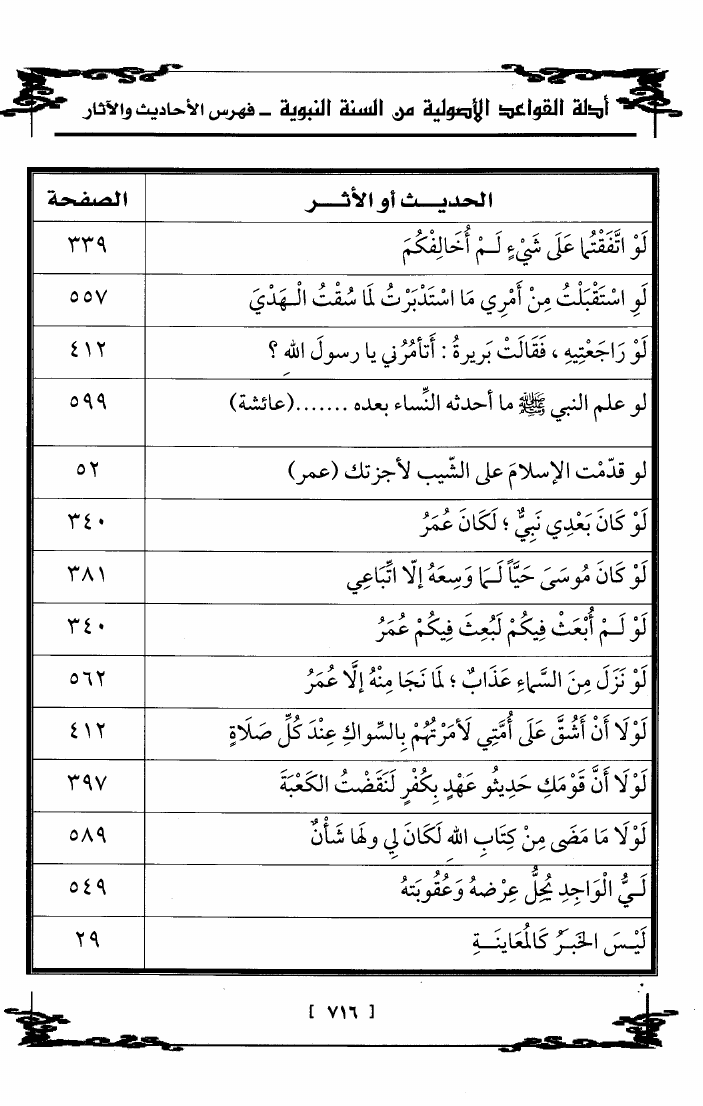 أدلة القواعد الأصولية من السنة النبوية ـ فهرس الأحاديث والآثار
الحديــث أو الأثــر الصفحة
لَوْ اتَّفَقْتُما عَلَى شَيْءٍ لَـمْ أُخَالِفْكُمَ ٣٣٩
لَوِ اسْتَقْبَلْتُ مِنْ أَمْرِي مَا اسْتَدْبَرْتُ لَمَا سُقْتُ الْـهَدْيَ ٥٥٧
لَوْ رَاجَعْتِيهِ ، فَقَالَتْ بَرِيرةُ : أَتأمُرُني يا رسولَ اللهِ ؟ ٤١٢
لو علم النبي ﷺ ما أحدثه النِّساء بعده .......(عائشة) ٥٩٩
لو قدّمْت الإسلامَ على الشّيب لأجزتك (عمر) ٥٢
لَوْ كَانَ بَعْدِي نَبِيٌّ ؛ لَكَانَ عُمَرُ ٣٤٠
لَوْ كَانَ مُوسَىَ حَيَّاً لَـمَا وَسِعَهُ إلّا اتِّبَاعِي ٣٨١
لَوْ لَـمْ أُبْعَثْ فِيكُمْ لَبُعِثَ فِيكُمْ عُمَرُ ٣٤٠
لَوْ نَزَلَ مِنَ السَّمَاءِ عَذَابٌ ؛ لَمَا نَجَا مِنْهُ إلَّا عُمَرُ ٥٦٢
لَوْلَا أَنْ أَشُقَّ عَلَى أُمَّتِي لَأمَرْتُهُمْ بِالسِّواكِ عِنْدَ كُلِّ صَلَاةٍ ٤١٢
لَوْلَا أَنَّ قَوْمَكِ حَدِيثُو عَهْدٍ بِكُفْرٍ لَنَقَضْتُ الكَعْبَةَ ٣٩٧
لَوْلَا مَا مَضَى مِنْ كِتَابِ اللهِ لَكَانَ لِي ولَهَا شَأْنٌ ٥٨٩
لَـيُّ الْوَاجِدِ يُحِلُّ عِرْضهُ وَعُقُوبَتهُ ٥٤٩
لَيْـسَ الخَبَـرُ كَالمُعَاينَــةِ ٢٩
[ ٧١٦ ]